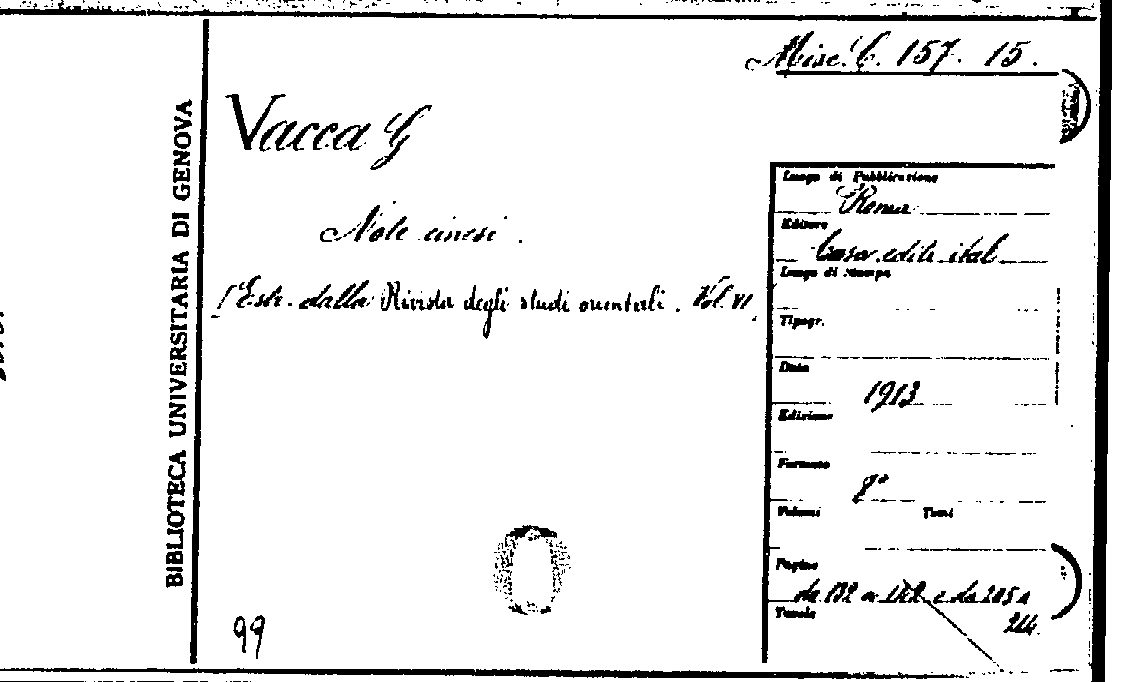 Misc. C. 157. 15.
BIBLIOTECA UNIVERSITARIA DI GENOVA
Vacca G
Note cinesi.
[Estr. dalla Rivista degli studi orientali. Vol. VI.
Luogo di Pubblicazione
Roma
Editore
Casa edit. ital
Luogo di Stampa
Tipogr.
Data
1913
Edizione
Formato
8°
Volumi Tomi
Pagine
da 132 a e da 205 a
214.
Tavole
99